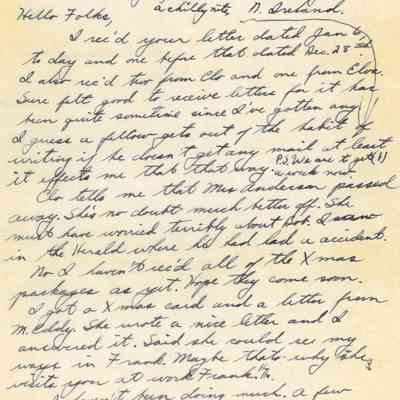 a chilly nite, N. Ireland.
Hello Folks,
I rec'd your letter dated Jan 6,
to day and one before that dated Dec. 28
I also rec'd two from Clo and one from
Sure felt good to receive letters for it has
been quite sometime since I've gotten any.
I guess a fellow gets out of the habit of
writing if he doesn't get any mail at least
it effects me that that way. P.S. We are to get (1)
a week now.
Clo tells me that Mrs Anderson passed
away. She's no doubt much better off. She
must have worried terribly about Bob. I saw
in the Herald where he had had a accident.
No I haven't rec'd all of the Xmas
packages as yet. Hope they come soon.
I got a Xmas card and a letter from
M. Eddy. She wrote a nice letter and I
answered it. Said she could see my
ways in Frank. Maybe thats why she
visits you at work Frank.
haven't been doing much. A few